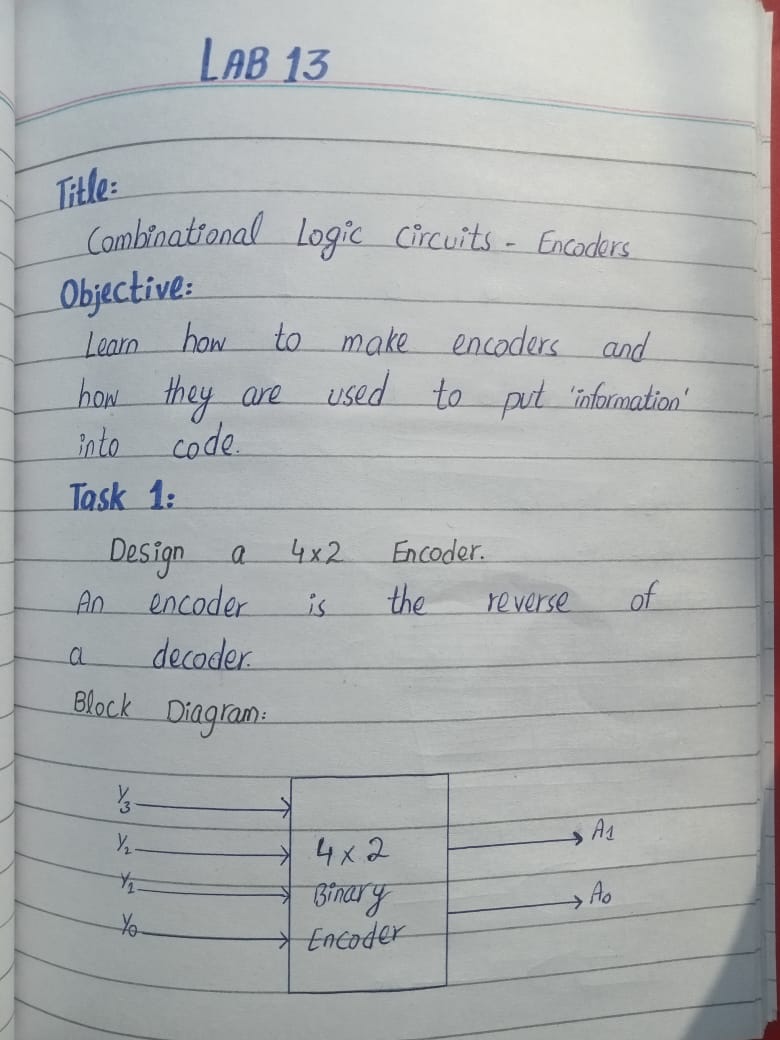 LAB 13
Title:
Combinational Logic Circuits - Encoders
Objective:
Learn how to make encoders and
how they are used to put 'information'
into code.
Task 1:
Design a 4x2 Encoder.
An encoder is the reverse of
a decoder.
Block Diagram:
Y3
Y2
Y1
Y0
4x2
Binary
Encoder
A1
A0